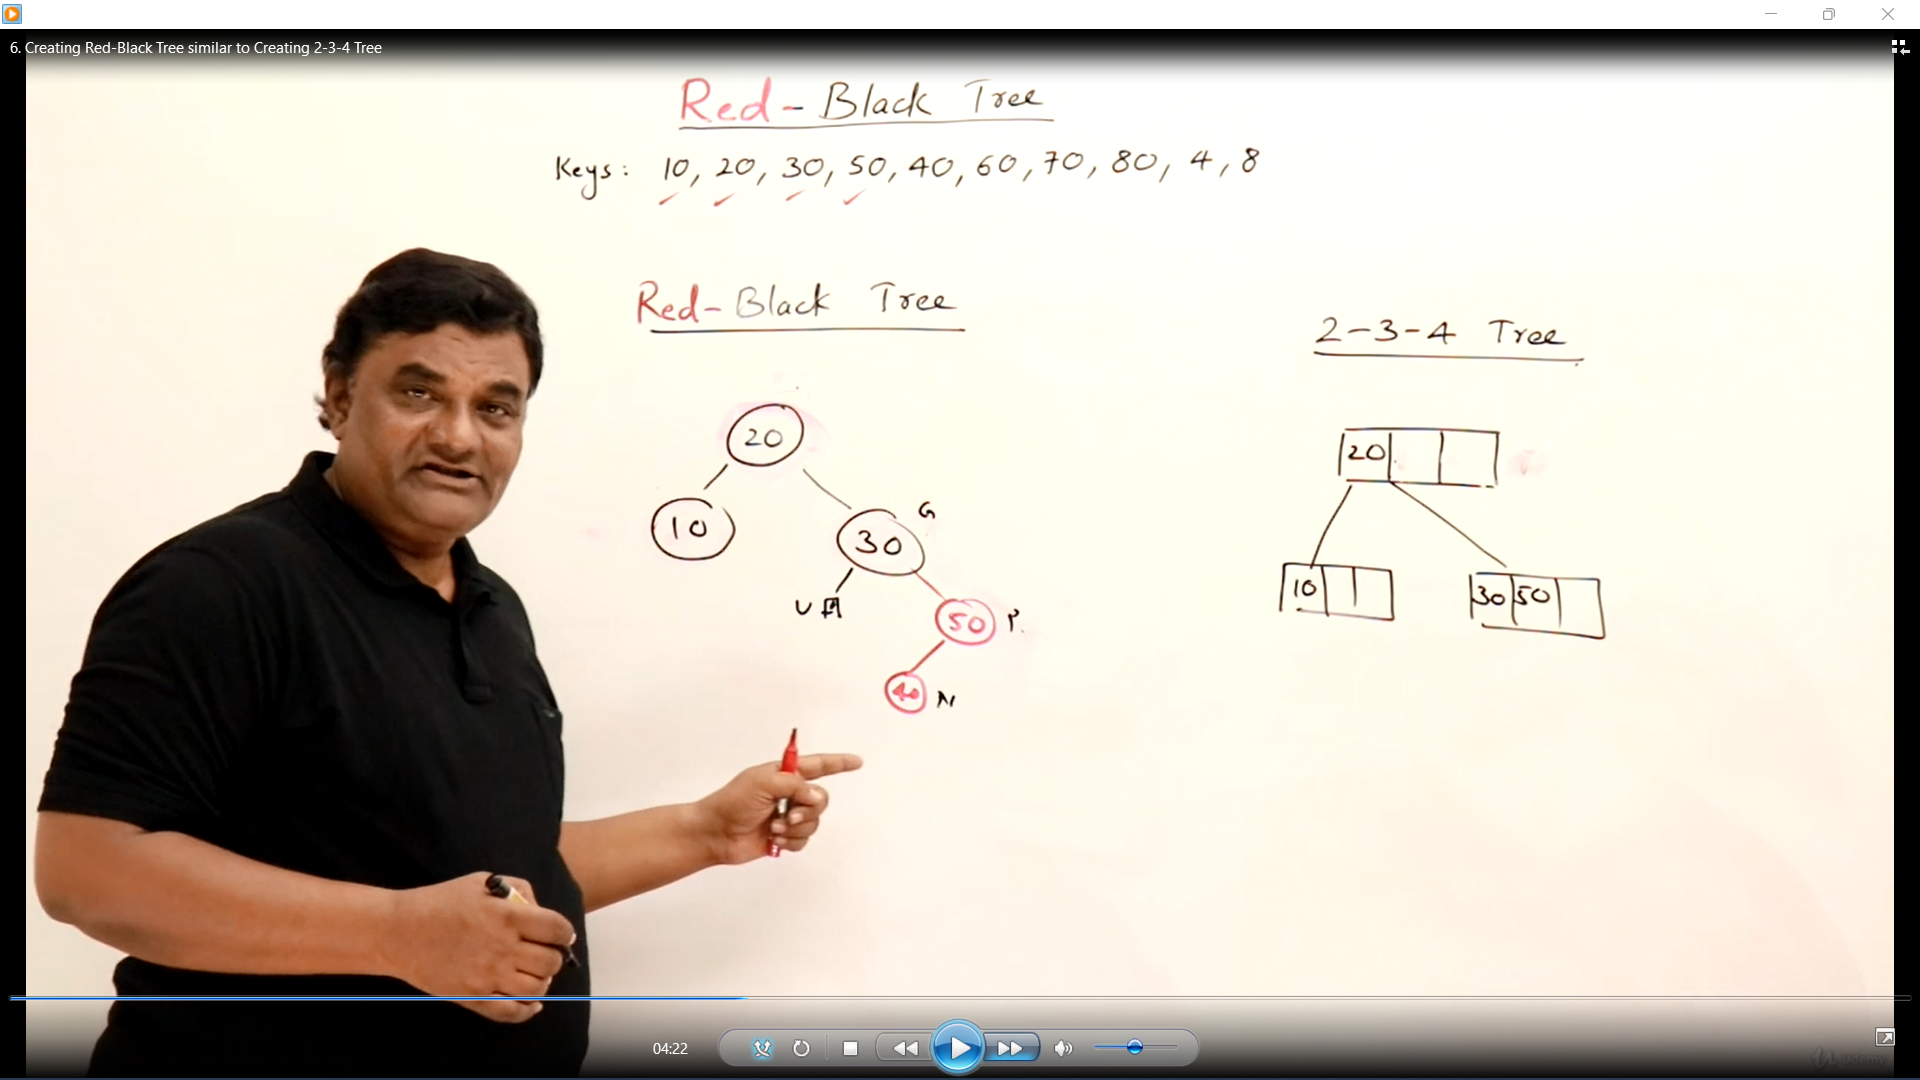 6. Creating Red-Black Tree similar to Creating 2-3-4 Tree
Red-Black Tree
Keys: 10, 20, 30, 50, 40, 60, 70, 80, 4, 8
Red-Black Tree
2-3-4 Tree
20
10
30
G
U
50
P.
40
N
20
10
30 50
04:22